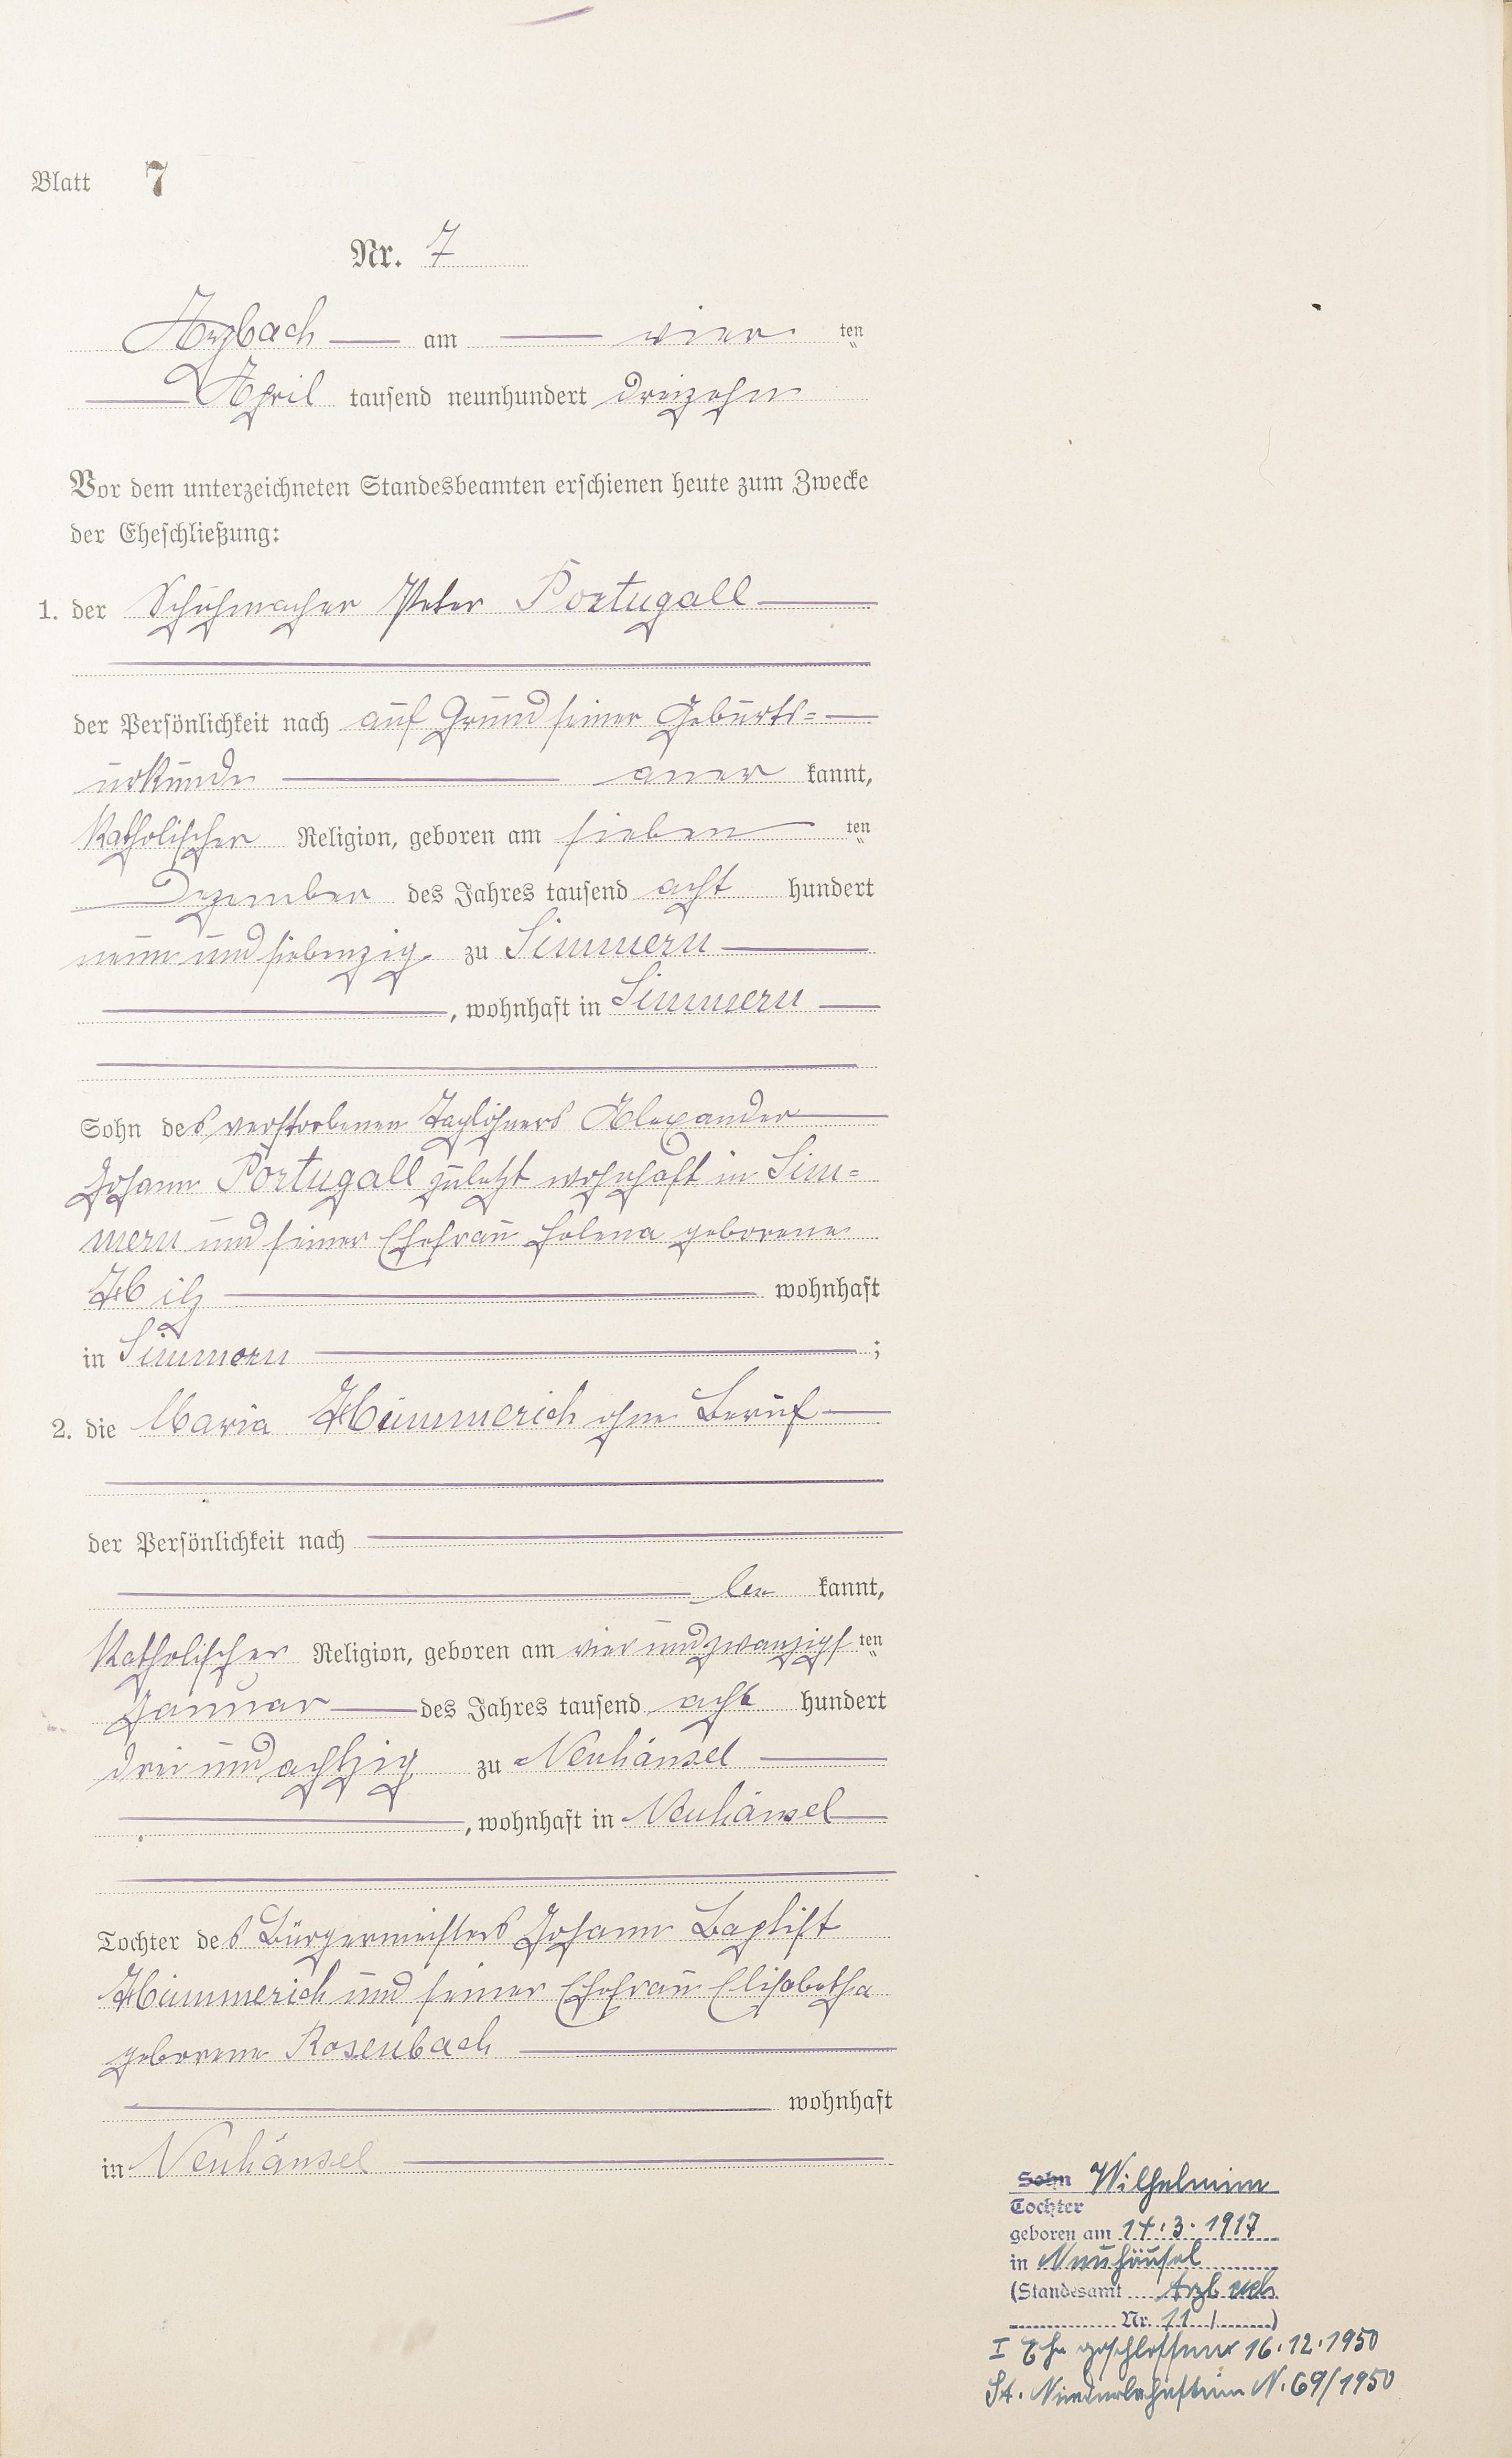 Blatt 7
Nr. 7
Arzbach am vier ten
April tausend neunhundert dreizehn
Vor dem unterzeichneten Standesbeamten erschienen heute zum Zwecke
der Eheschließung:
1. der Schuhmacher Peter Portugall
der Persönlichkeit nach auf Grund seiner Geburts=
urkunde aner kannt,
katholischer Religion, geboren am sieben ten
Dezember des Jahres tausend acht hundert
neun und siebenzig zu Simmern
, wohnhaft in Simmern
Sohn des verstorbenen Taglöhners Alexander
Johann Portugall zuletzt wohnhaft in Sim=
mern und seiner Ehefrau Helena geborene
Hilz wohnhaft
in Simmern ;
2. die Maria Hümmerich ohne Beruf
der Persönlichkeit nach
be kannt,
katholischer Religion, geboren am vier und zwanzigs ten
Januar des Jahres tausend acht hundert
drei und achtzig zu Neuhäusel
, wohnhaft in Neuhäusel
Tochter des Bürgermeisters Johann Baptist
Hümmerich und seiner Ehefrau Elisabetha
geborene Rosenbach
wohnhaft
in Neuhäusel
Sohn Wilhelmine
Tochter
geboren am 14.3.1917
in Neuhäusel
(Standesamt Arzbach
Nr. 11 / )
I Ehe geschlossen 16.12.1950
St. N. 69/1950